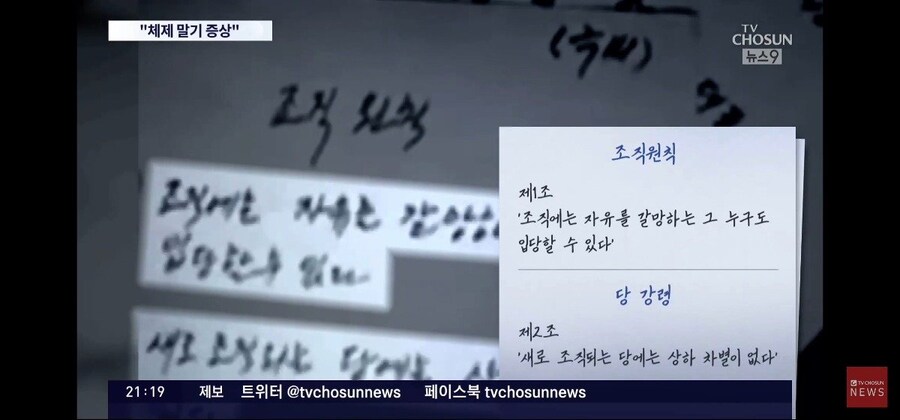 "체제 말기 증상"
TV
CHOSUN
뉴스9
조직 원칙
조직에는 자유를 갈망하
입당할 수 있다
새로 조직되는 당에는 상
조직원칙
제1조
'조직에는 자유를 갈망하는 그 누구도
입당할 수 있다'
당 강령
제2조
'새로 조직되는 당에는 상하 차별이 없다'
21:19 제보 트위터 @tvchosunnews 페이스북 tvchosunnews
TV CHOSUN
NEWS